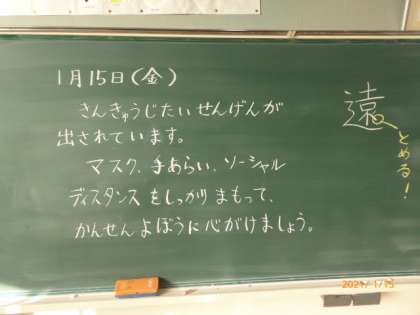 1月15日(金)
きんきゅうじたいせんげんが
出されています。
マスク、手あらい、ソーシャル
ディスタンスをしっかりまもって、
かんせんよぼうに心がけましょう。
遠
とめる!
2021/1/15